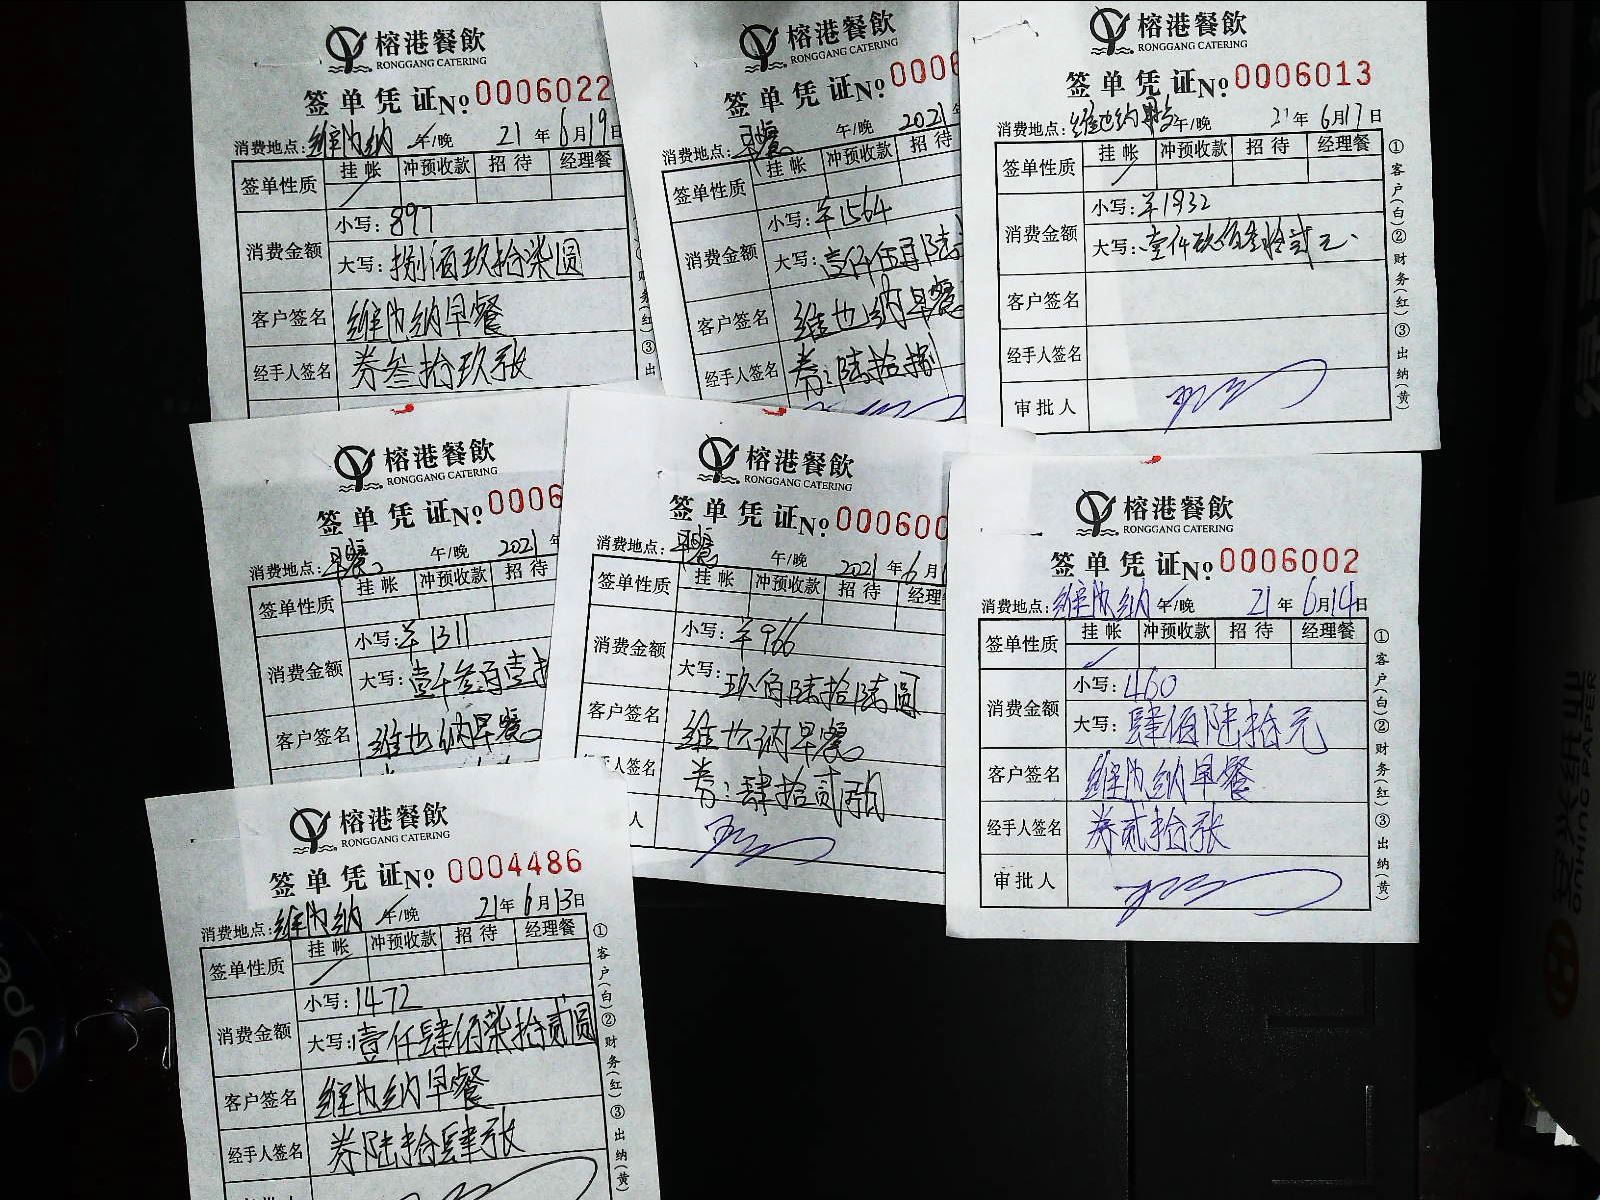 榕港餐飲
RONGGANG CATERING
签单凭证No. 0006022
消费地点: 维也纳 午/晚 21年6月19日
签单性质 挂帐 冲预收款 招待 经理餐
消费金额 小写: 897
大写: 捌佰玖拾柒圆
客户签名 维也纳早餐
经手人签名 券叁拾玖张
榕港餐飲
RONGGANG CATERING
签单凭证No. 0006
消费地点: 早餐 午/晚 2021
签单性质 挂帐 冲预收款 招待
消费金额 小写: 羊1564
大写: 壹仟伍百陆
客户签名 维也纳早餐
经手人签名 券:陆拾捌
榕港餐飲
RONGGANG CATERING
签单凭证No. 0006013
消费地点: 维也纳 午/晚 21年6月17日
签单性质 挂帐 冲预收款 招待 经理餐
消费金额 小写: 羊1932
大写: 壹仟玖佰叁拾贰元
客户签名
经手人签名
审批人
①客户(白)②财务(红)③出纳(黄)
榕港餐飲
RONGGANG CATERING
签单凭证No. 0006
消费地点: 早餐 午/晚 2021年
签单性质 挂帐 冲预收款 招待
消费金额 小写: 羊1311
大写: 壹千叁百壹拾
客户签名 维也纳早餐
榕港餐飲
RONGGANG CATERING
签单凭证No. 000600
消费地点: 早餐 午/晚 2021年6月
签单性质 挂帐 冲预收款 招待 经理
消费金额 小写: 羊966
大写: 玖佰陆拾陆圆
客户签名 维也纳早餐
手人签名 券:肆拾贰张
人
榕港餐飲
RONGGANG CATERING
签单凭证No. 0006002
消费地点: 维也纳 午/晚 21年6月14日
签单性质 挂帐 冲预收款 招待 经理餐
消费金额 小写: 460
大写: 肆佰陆拾元
客户签名 维也纳早餐
经手人签名 券贰拾张
审批人
①客户(白)②财务(红)③出纳(黄)
榕港餐飲
RONGGANG CATERING
签单凭证No. 0004486
消费地点: 维也纳 午/晚 21年6月13日
签单性质 挂帐 冲预收款 招待 经理餐
消费金额 小写: 1472
大写: 壹仟肆佰柒拾贰圆
客户签名 维也纳早餐
经手人签名 券陆拾肆张
①客户(白)②财务(红)③出纳(黄)